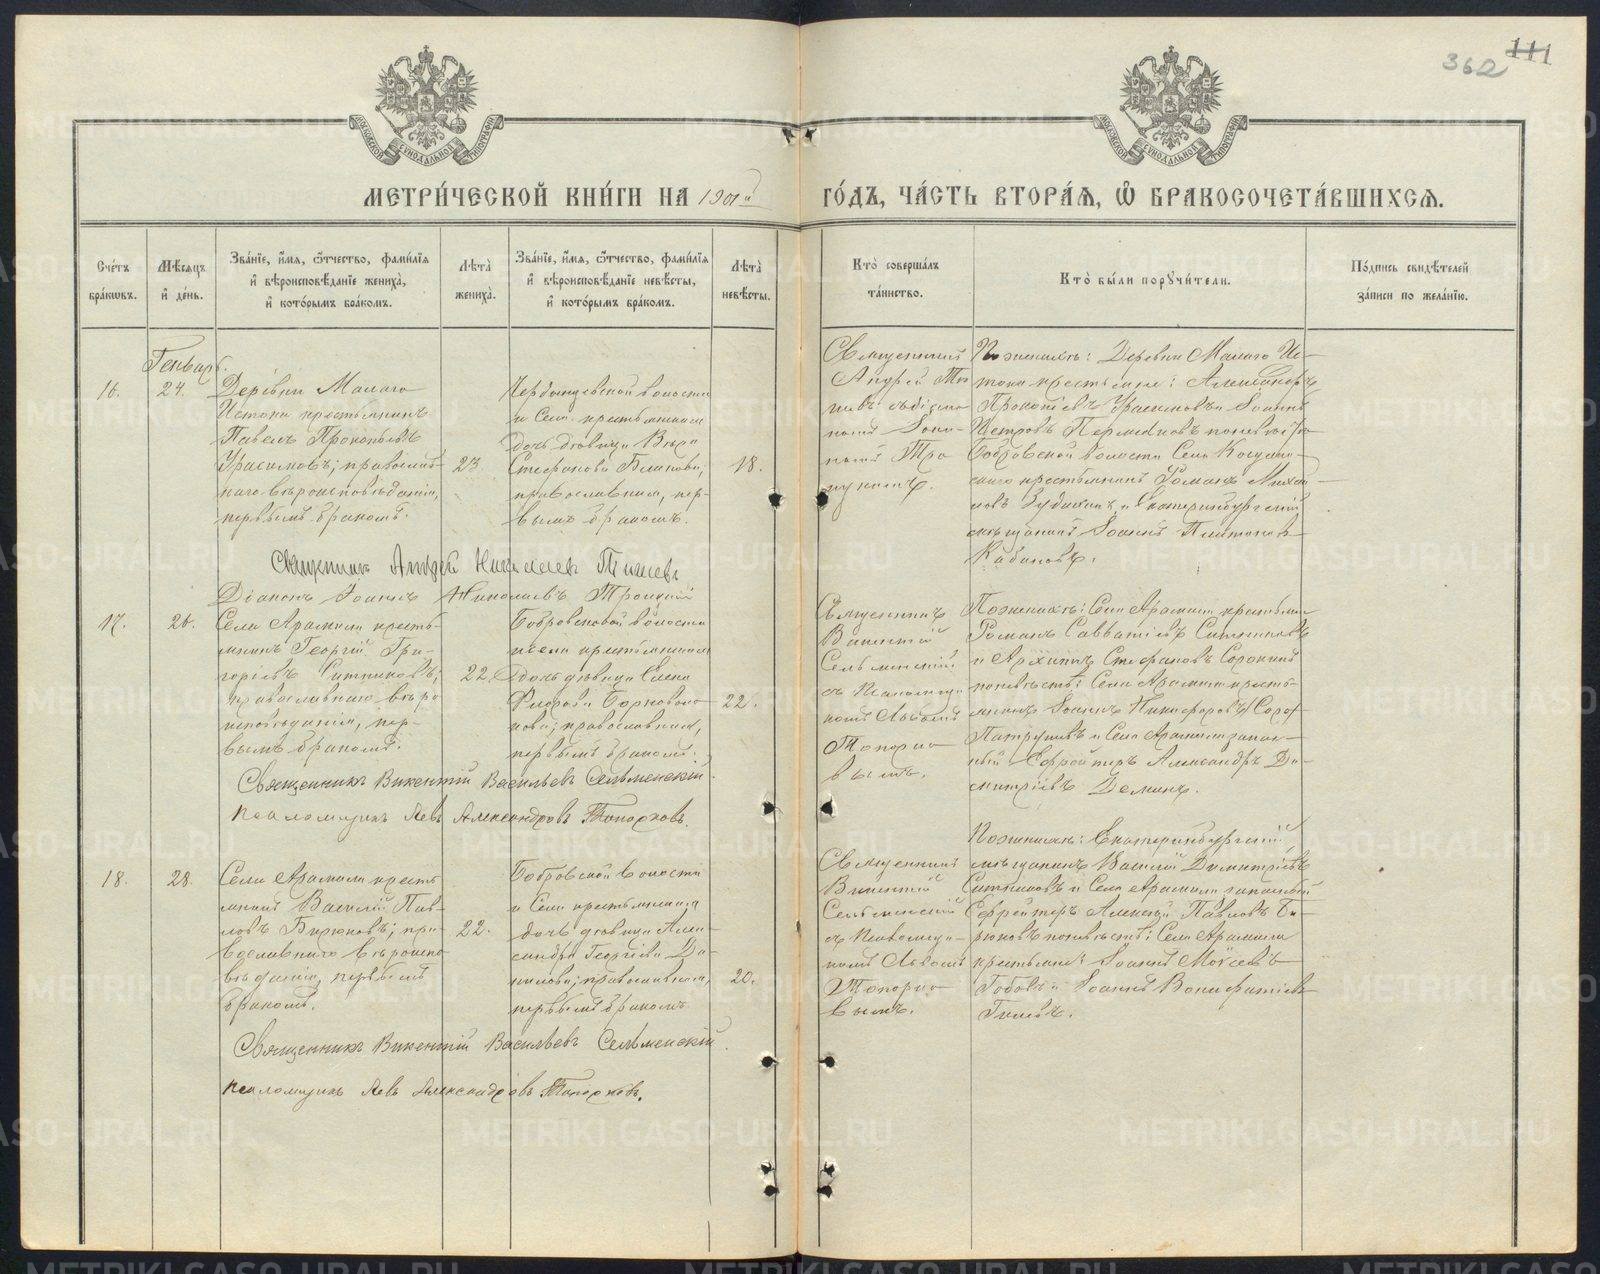 362 111
МОСКОВСКОЙ СУНОДАЛЬНОЙ ТИПОГРАФІИ
МОСКОВСКОЙ СУНОДАЛЬНОЙ ТИПОГРАФІИ
МЕТРИ́ЧЕСКОЙ КНИ́ГИ НА 1901й ГО́ДЪ, ЧА́СТЬ ВТОРА́Я, Ѿ БРАКОСОЧЕТА́ВШИХСЯ.
Сче́тъ
бра́ковъ.
Мѣ́сяцъ
и҆ де́нь.
Зва́нїе, и҆́мя, ѻ҆́тчество, фами́лїя
и҆ вѣроисповѣ́данїе жениха̀,
и҆ кото́рымъ бра́комъ.
Лѣта̀
жениха̀.
Зва́нїе, и҆́мя, ѻ҆́тчество, фами́лїя
и҆ вѣроисповѣ́данїе невѣ́сты,
и҆ кото́рымъ бра́комъ.
Лѣта̀
невѣ́сты.
Кто̀ соверша́лъ
та́инство.
Кто̀ бы́ли порꙋчи́тели.
По́дпись свидѣ́телей
за́писи по жела́нїю.
Генварь.
16.
24.
Деревни Малаго
Истока крестьянинъ
Павелъ Прокопьевъ
Урасимовъ; православ-
наго вѣроисповѣданія,
первымъ бракомъ.
23
волости
и Села крестьянская
дочь дѣвица Вѣра
Стефанова Блинова,
православная, пер-
вымъ бракомъ.
18.
Священникъ
Андрей
съ діако-
номъ Іоан-
номъ Тро
ицкимъ.
По женихѣ: Деревни Малаго Ис-
тока крестьяне: Александръ
Прокопіевъ Урасимовъ и Іоаннъ
Петровъ Пермяковъ по невѣстѣ:
Бобровской волости Села
крестьянинъ Романъ Михаи-
ловъ и Екатеринбургскій
мѣщанинъ Іоаннъ Платонов
Кабановъ.
Священникъ Андрей Николаевъ
Діаконъ Іоаннъ Николаевъ Троицкій
17.
26.
Села Арамили кресть-
янинъ Георгій Гри-
горіевъ Ситниковъ,
православнаго вѣро
исповѣданія, пер-
вымъ бракомъ.
22.
Бобровской волости
и села крестьянская
дочь дѣвица Елена
православная,
первымъ бракомъ.
22.
Священникъ
Викентій
Сельменскій
съ псаломщи
комъ Львомъ
Топорко
вымъ.
По женихѣ: Села Арамили крестьяне
Романъ Савватіевъ Ситниковъ
и Архипъ Стефановъ Сорокинъ
по невѣстѣ: Села Арамили кресть-
янинъ Іоаннъ Никифоровъ
Патрушевъ и Села Арамили запас-
ный Ефрейторъ Александръ Ди-
митріевъ Деминъ.
Священникъ Викентій Васильевъ Сельменскій.
Псаломщикъ Левъ Александровъ Топорковъ.
18.
28.
Села Арамили кресть
янинъ Василій Пав-
ловъ Бирюковъ; пра-
вославнаго вѣроиспо-
вѣданія, первымъ
бракомъ.
22.
Бобровской волости
и Села крестьянина
дочь дѣвица Алек-
сандра Георгіева Да-
нилова; православная,
первымъ бракомъ
20.
Священникъ
Викентій
Сельменскій
съ Псаломщи-
комъ Львомъ
Топорко
вымъ.
По женихѣ: Екатеринбургскій
мѣщанинъ Василій Димитріевъ
Ситниковъ и Села Арамили запасный
Ефрейторъ Алексѣй Павловъ Би-
рюковъ по невѣстѣ: Села Арамили
крестьяне: Іоаннъ Моѵсеевъ
и Іоаннъ Вонифатіевъ
Священникъ Викентій Васильевъ Сельменскій.
Псаломщикъ Левъ Александровъ Топорковъ.
METRIKI.GASO-URAL.RU